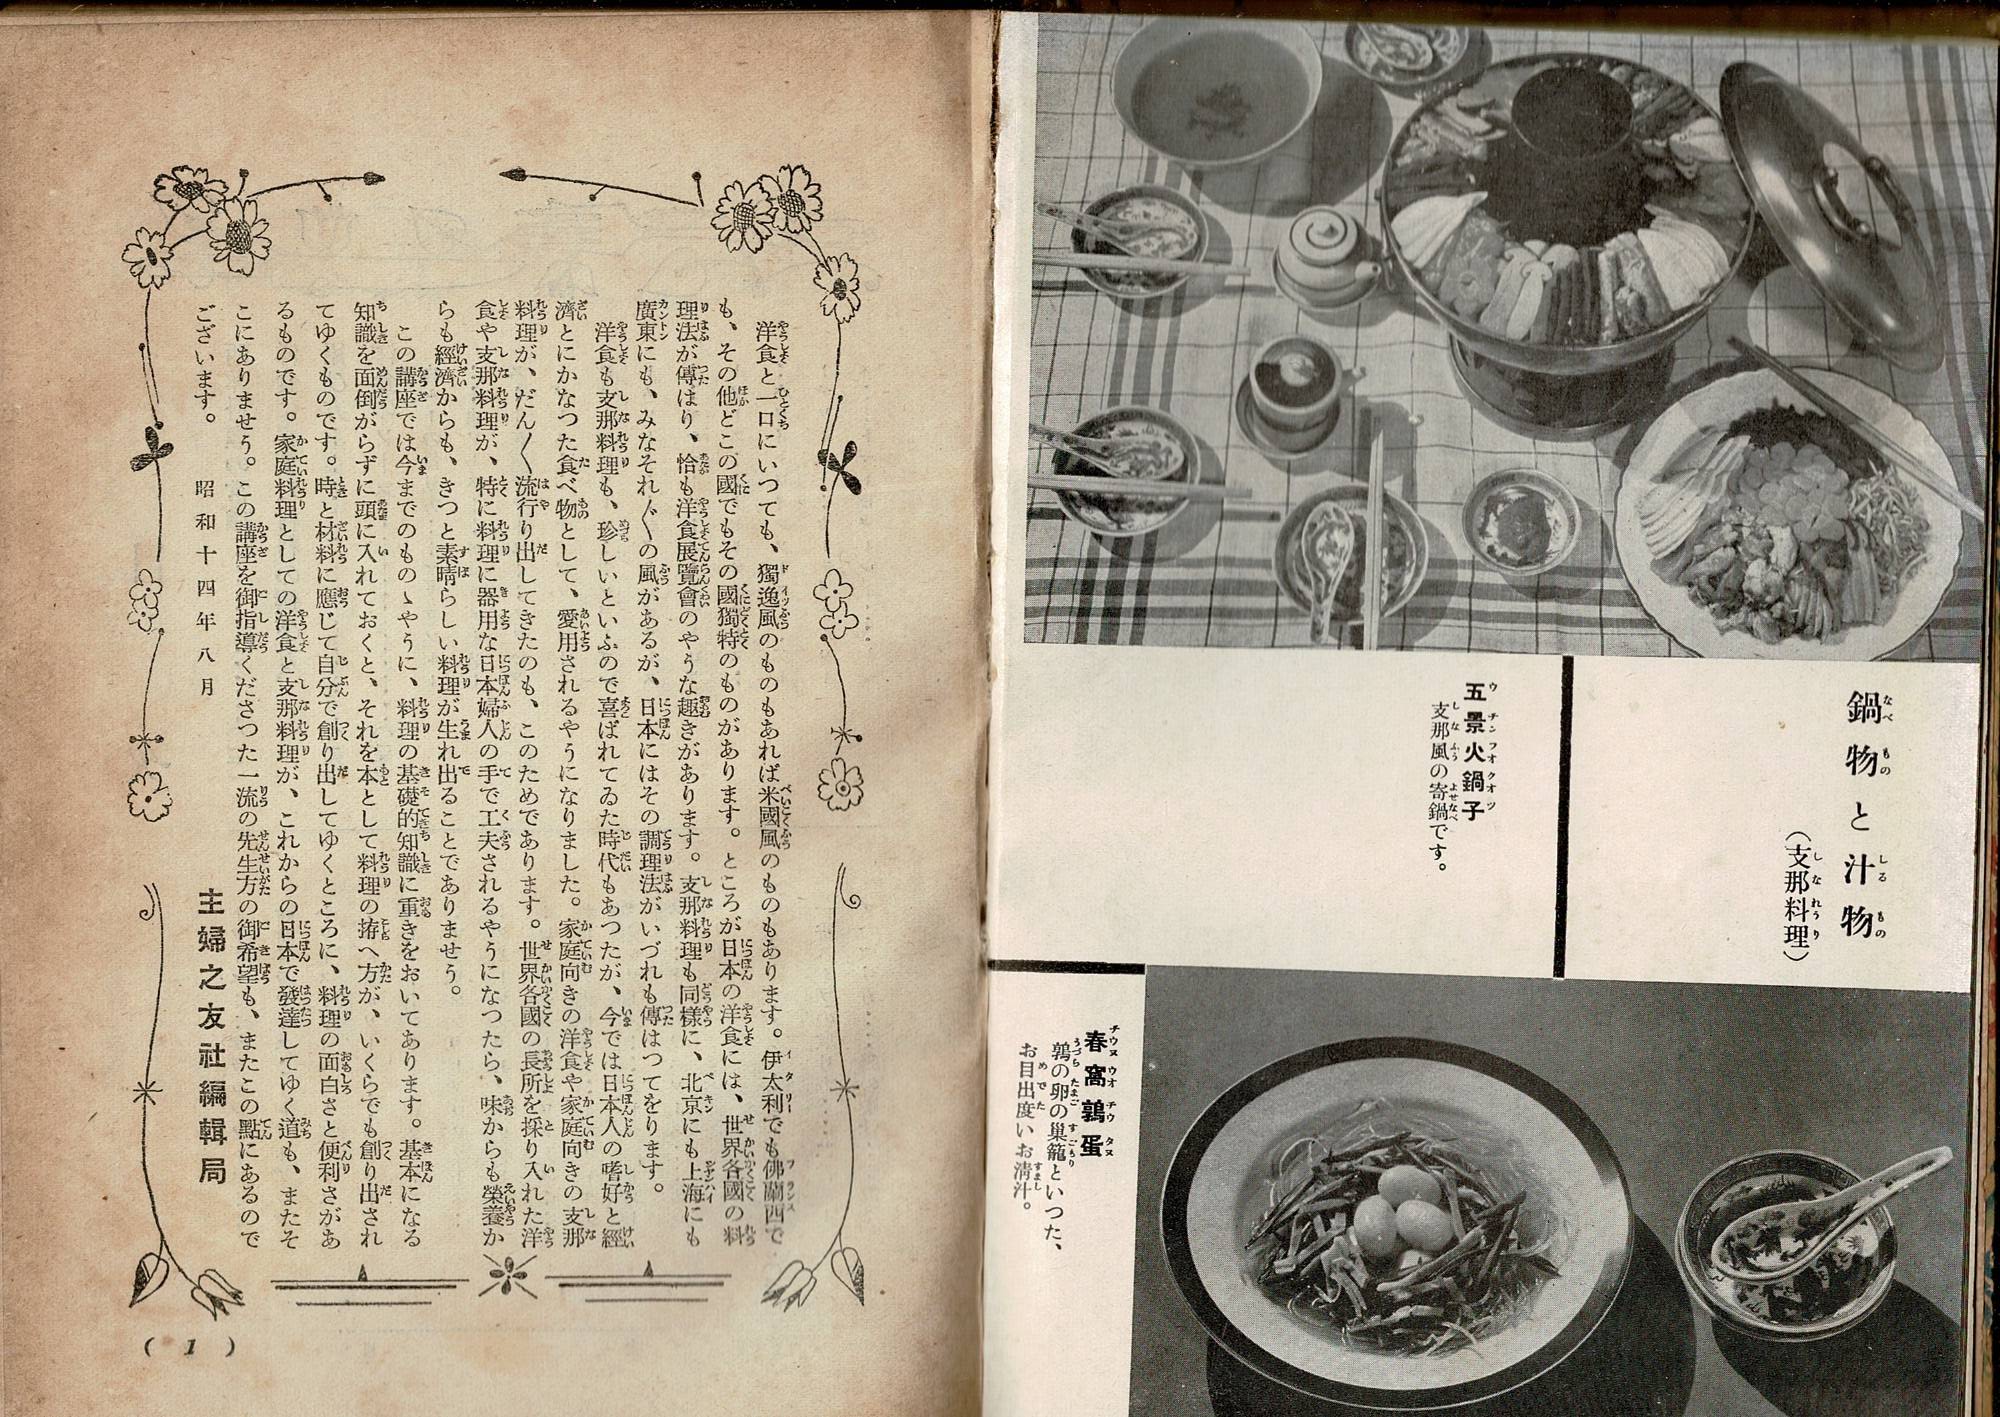 鍋物と汁物
(支那料理)
五景火鍋子
支那風の寄鍋です。
春窩鶉蛋
鶉の卵の巣籠といつた、
お目出度いお清汁。
洋食と一口にいつても、獨逸風のものもあれば米國風のものもあります。伊太利でも佛蘭西で
も、その他どこの國でもその國獨特のものがあります。ところが日本の洋食には、世界各國の料
理法が傳はり、恰も洋食展覽會のやうな趣きがあります。支那料理も同樣に、北京にも上海にも
廣東にも、みなそれ〴〵の風があるが、日本にはその調理法がいづれも傳はつてをります。
洋食も支那料理も、珍しいといふので喜ばれてゐた時代もあつたが、今では日本人の嗜好と經
濟とにかなつた食べ物として、愛用されるやうになりました。家庭向きの洋食や家庭向きの支那
料理が、だん〱流行り出してきたのも、このためであります。世界各國の長所を採り入れた洋
食や支那料理が、特に料理に器用な日本婦人の手で工夫されるやうになつたら、味からも榮養か
らも經濟からも、きつと素晴らしい料理が生れ出ることでありませう。
この講座では今までのものゝやうに、料理の基礎的知識に重きをおいてあります。基本になる
知識を面倒がらずに頭に入れておくと、それを本として料理の拵へ方が、いくらでも創り出され
てゆくものです。時と材料に應じて自分で創り出してゆくところに、料理の面白さと便利さがあ
るものです。家庭料理としての洋食と支那料理が、これからの日本で發達してゆく道も、またそ
こにありませう。この講座を御指導くださつた一流の先生方の御希望も、またこの點にあるので
ございます。
昭和十四年八月
主婦之友社編輯局
( 1 )